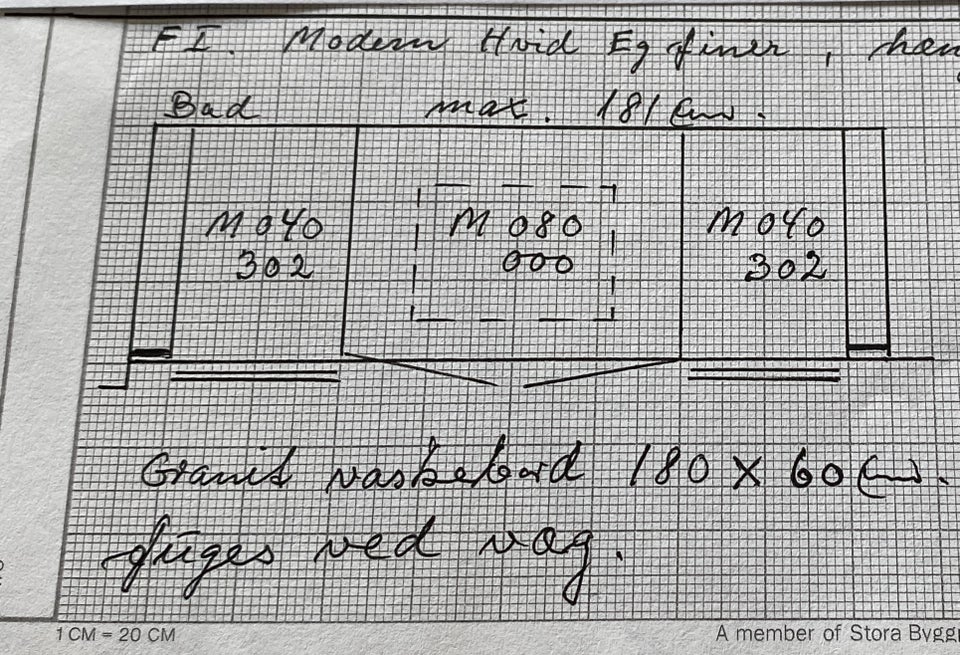 FI. Modern Hvid Eg finer,
Bad max. 181 cm.
M 040 M 080 M 040
302 000 302
Granit vaskebord 180 x 60 cm.
fuges ved væg.
1 CM = 20 CM A member of Stora